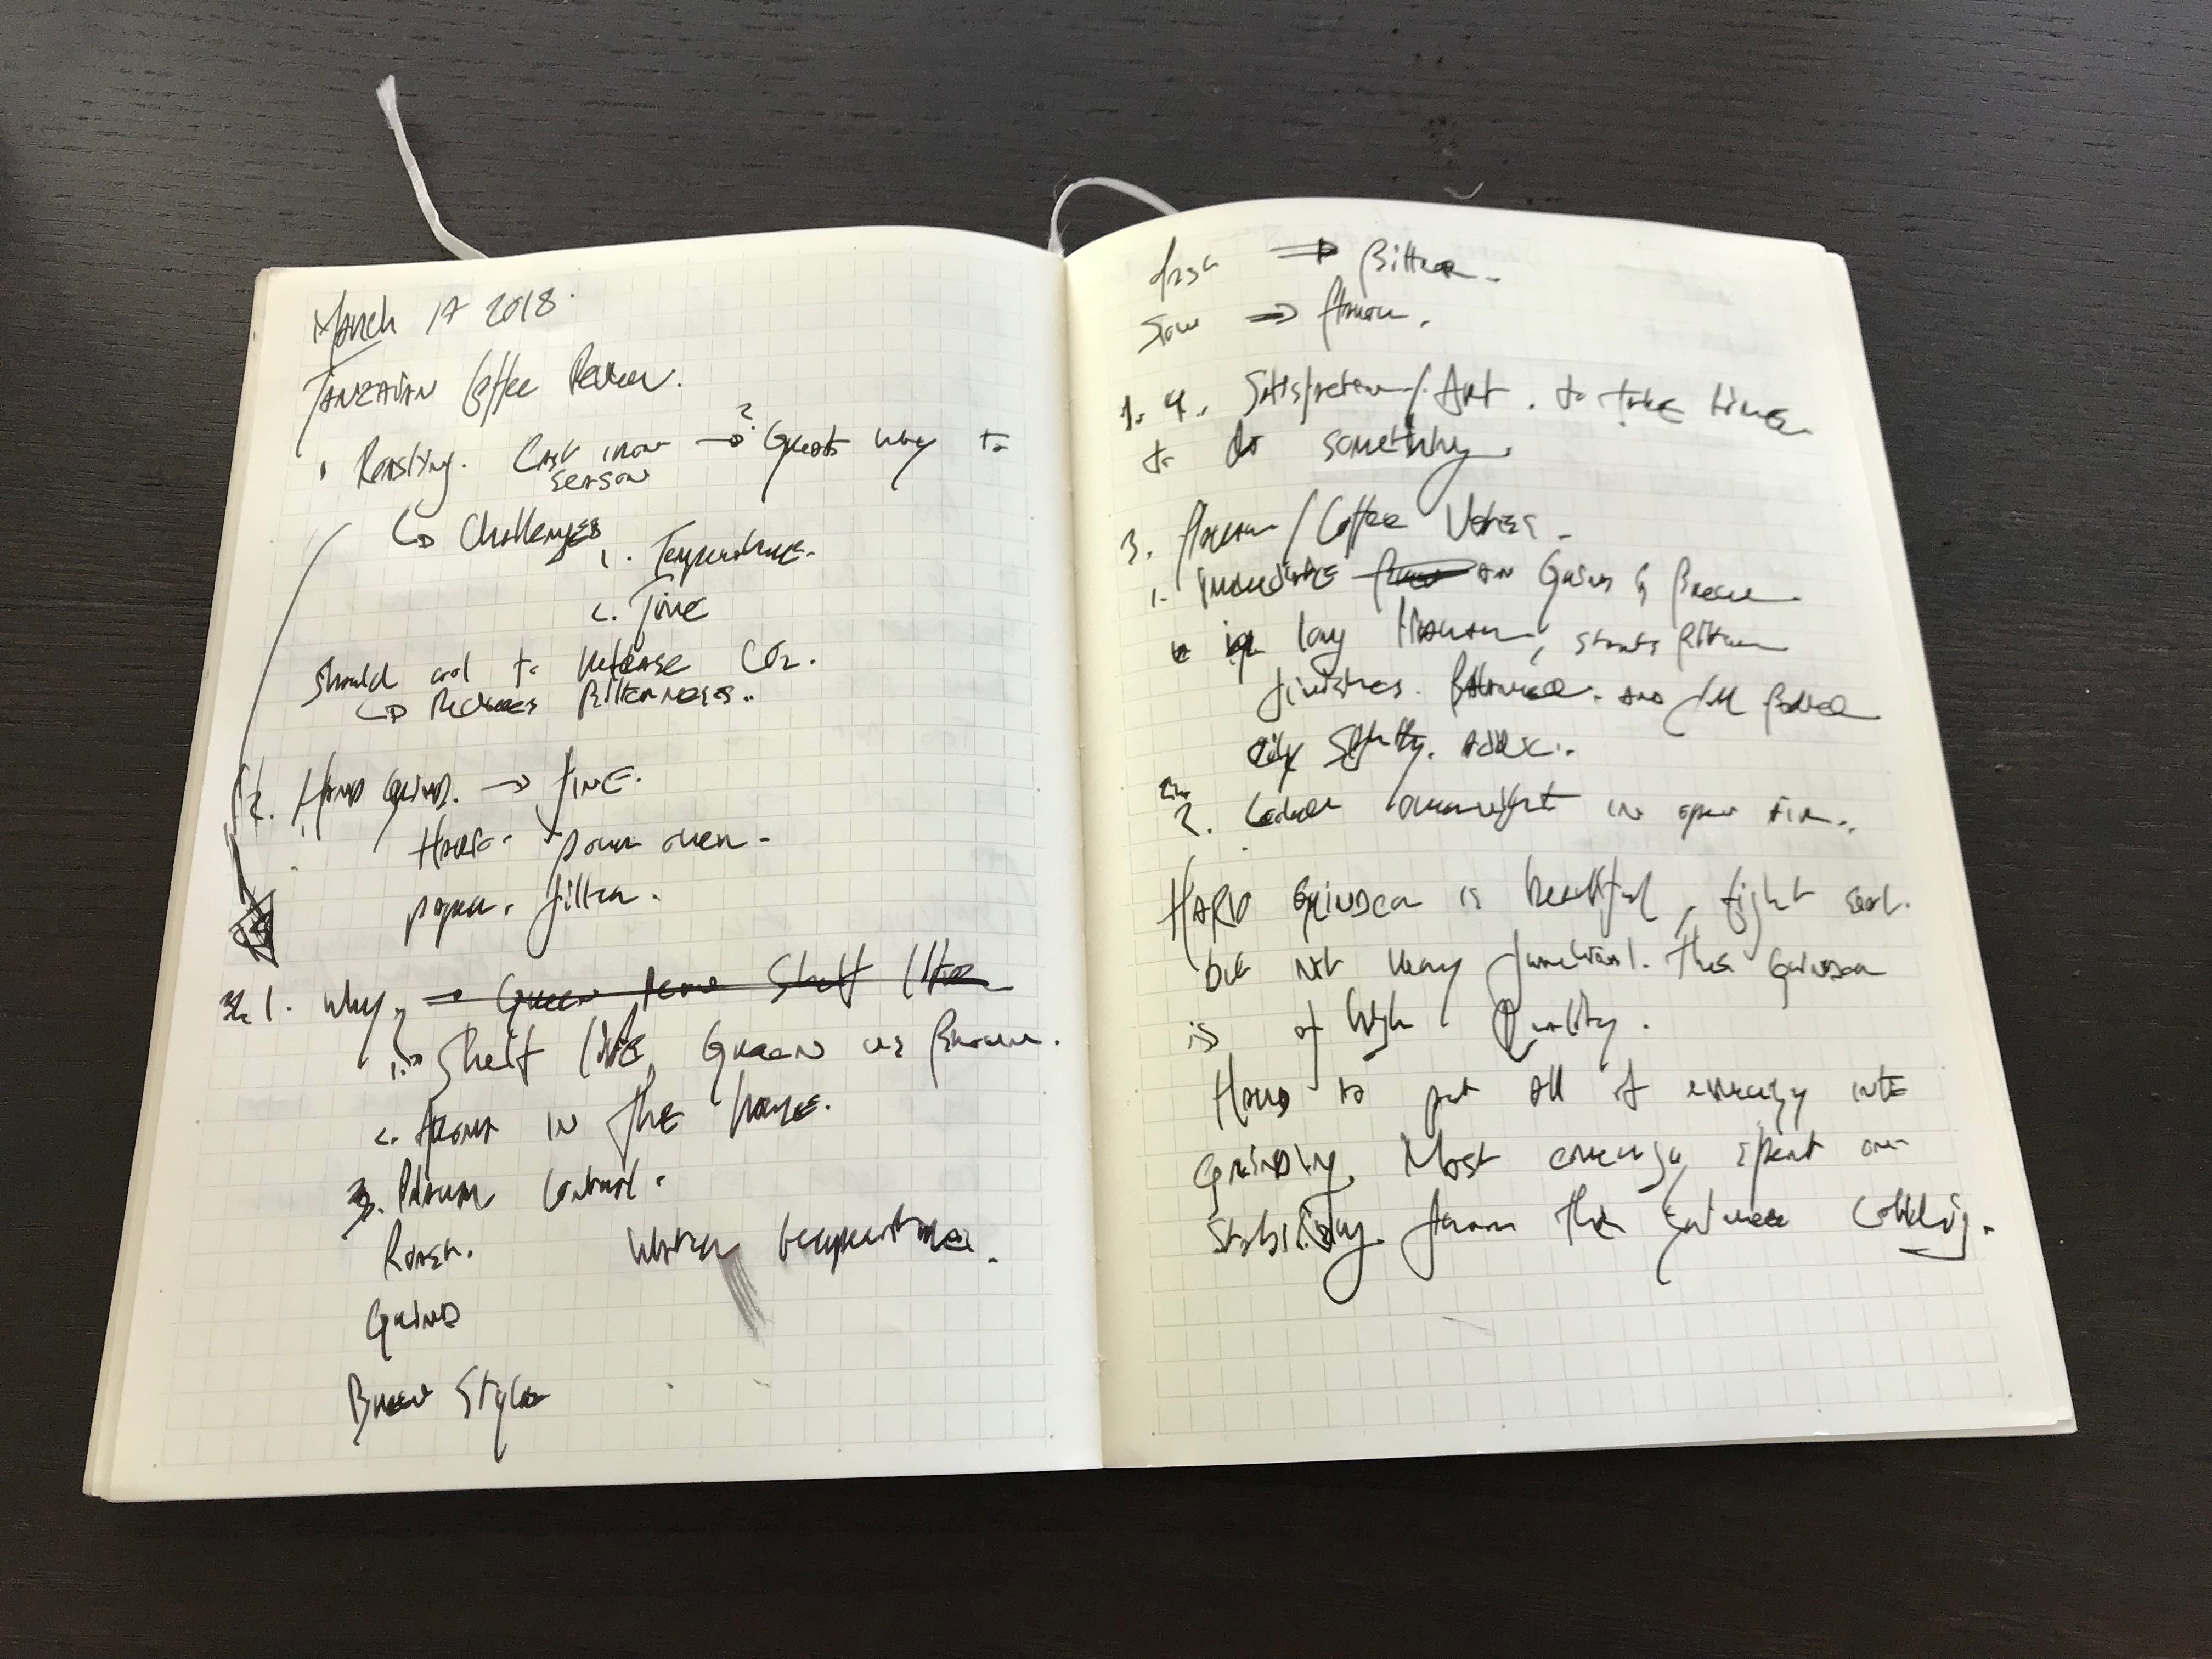 March 17 2018.
TANZAIAN Coffee Review.
Roasting. Cast iron →? Great way to
season
↳ Challenges
1. Temperature.
2. Time
should cool to release CO2.
↳ Reduces Bitterness..
2. HAND GRIND. → FINE.
pour over.
paper. filter.
1. Why → Green Shelf life
1. Shelf life, Green vs Brown.
2. AROMA IN THE house.
3. Flavour Control.
Roast. Water temperature.
GRIND
Brew Style
⇒ Bitter.
Slow ⇒ Flavour.
4. Satisfaction / Art. to take time
to do something.
3. Flavour / Coffee Notes.
1. immediate Grind & Brew
long, starts Bitter
finishes. Balanced. AND full Bodied
slightly.
2. overnight in open air..
GRINDER is beautiful, tight seal.
but not very functional. This GRINDER
is of high Quality.
Hard to put all of energy into
GRINDING. Most energy spent on
stability from the